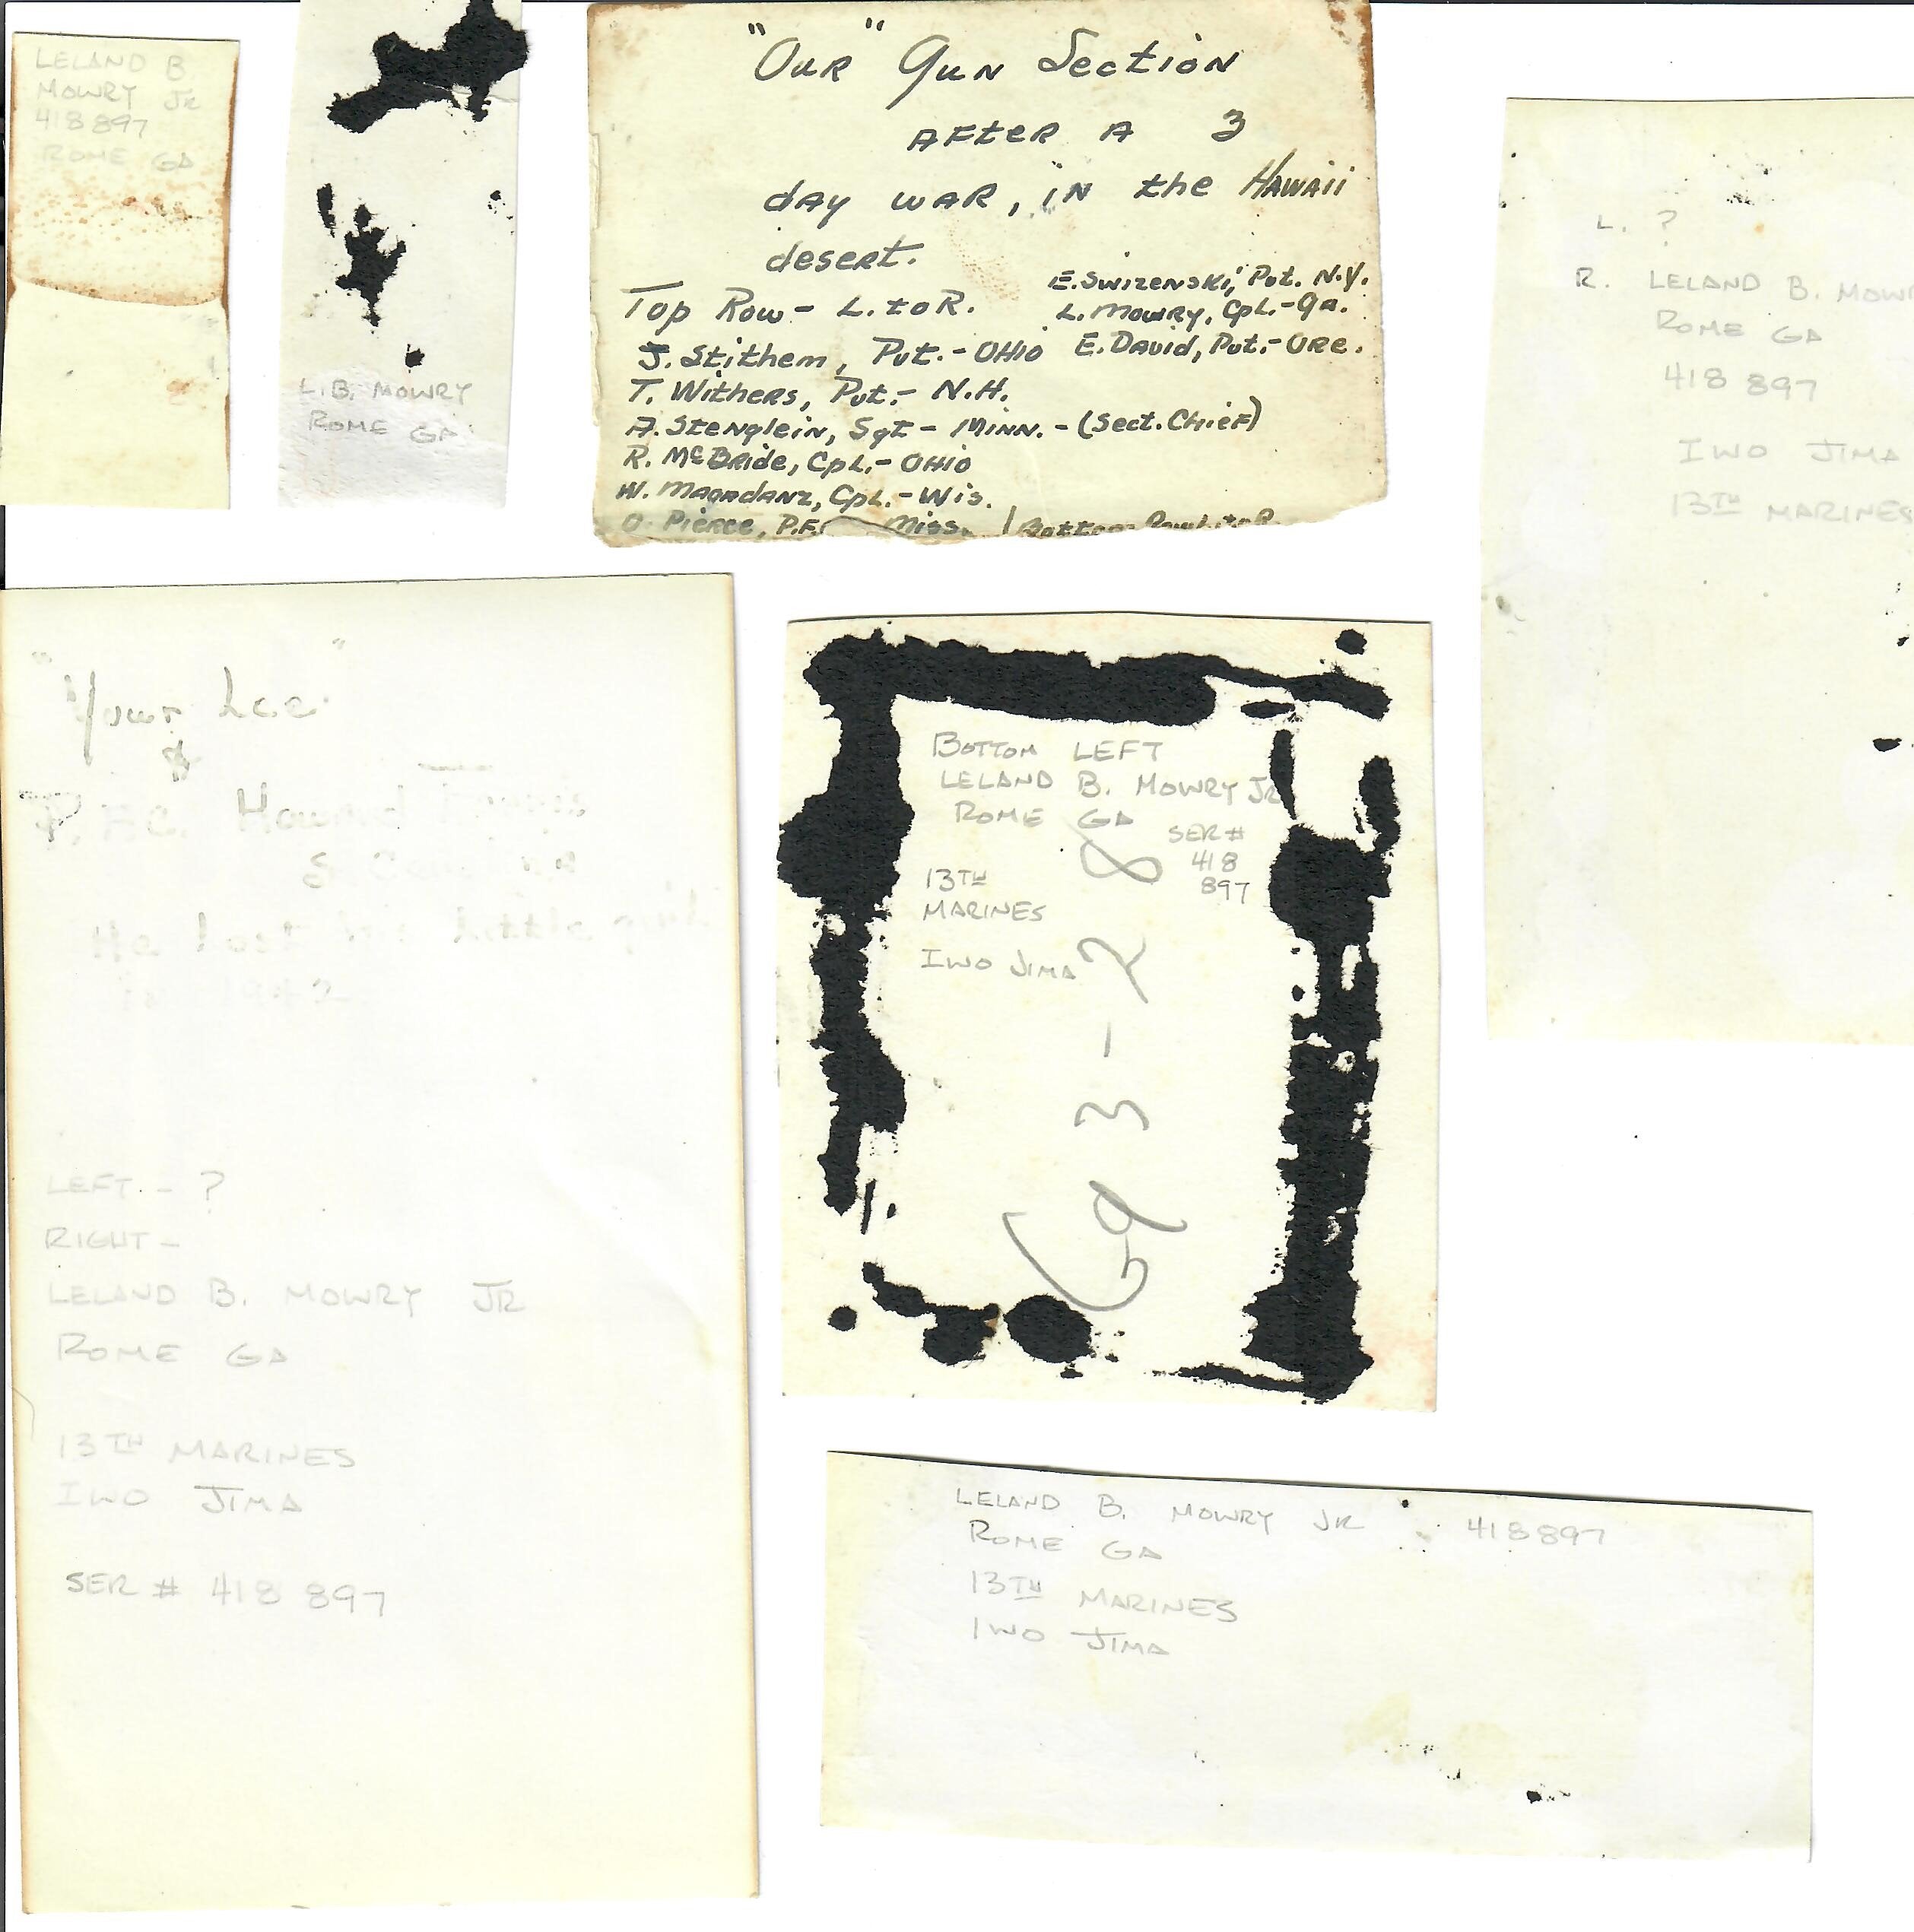 LELAND B.
MOWRY JR
418 897
ROME GA
L.B. MOWRY
ROME GA
"OUR" Gun Section
AFter A 3
day war, in the Hawaii
desert.
Top Row - L. to R.
J. Stithem, Pvt. - OHIO
T. Withers, Pvt. - N.H.
A. Stenglein, Sgt - Minn. - (Sect. Chief)
R. McBride, Cpl. - OHIO
W. Magadanz, Cpl. - Wis.
O. Pierce, P.F. Miss.
E. Swizenski, Pvt. N.Y.
L. Mowry, Cpl. - Ga.
E. David, Pvt. - Ore.
Bottom Row L to R.
L. ?
R. LELAND B. MOWR
ROME GA
418 897
IWO JIMA
13TH MARINES
"Your Lee"
&
P.F.C. Howard
S. Carolina
He lost his little girl
in 1942
LEFT. - ?
RIGHT -
LELAND B. MOWRY JR
ROME GA
13TH MARINES
IWO JIMA
SER # 418 897
BOTTOM LEFT
LELAND B. MOWRY JR
ROME GA
SER #
418
897
13TH
MARINES
IWO JIMA
69 3-28
LELAND B. MOWRY JR 418897
ROME GA
13TH MARINES
IWO JIMA